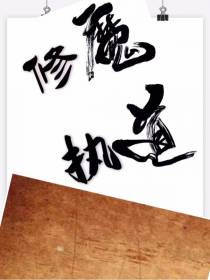 修魔
执道